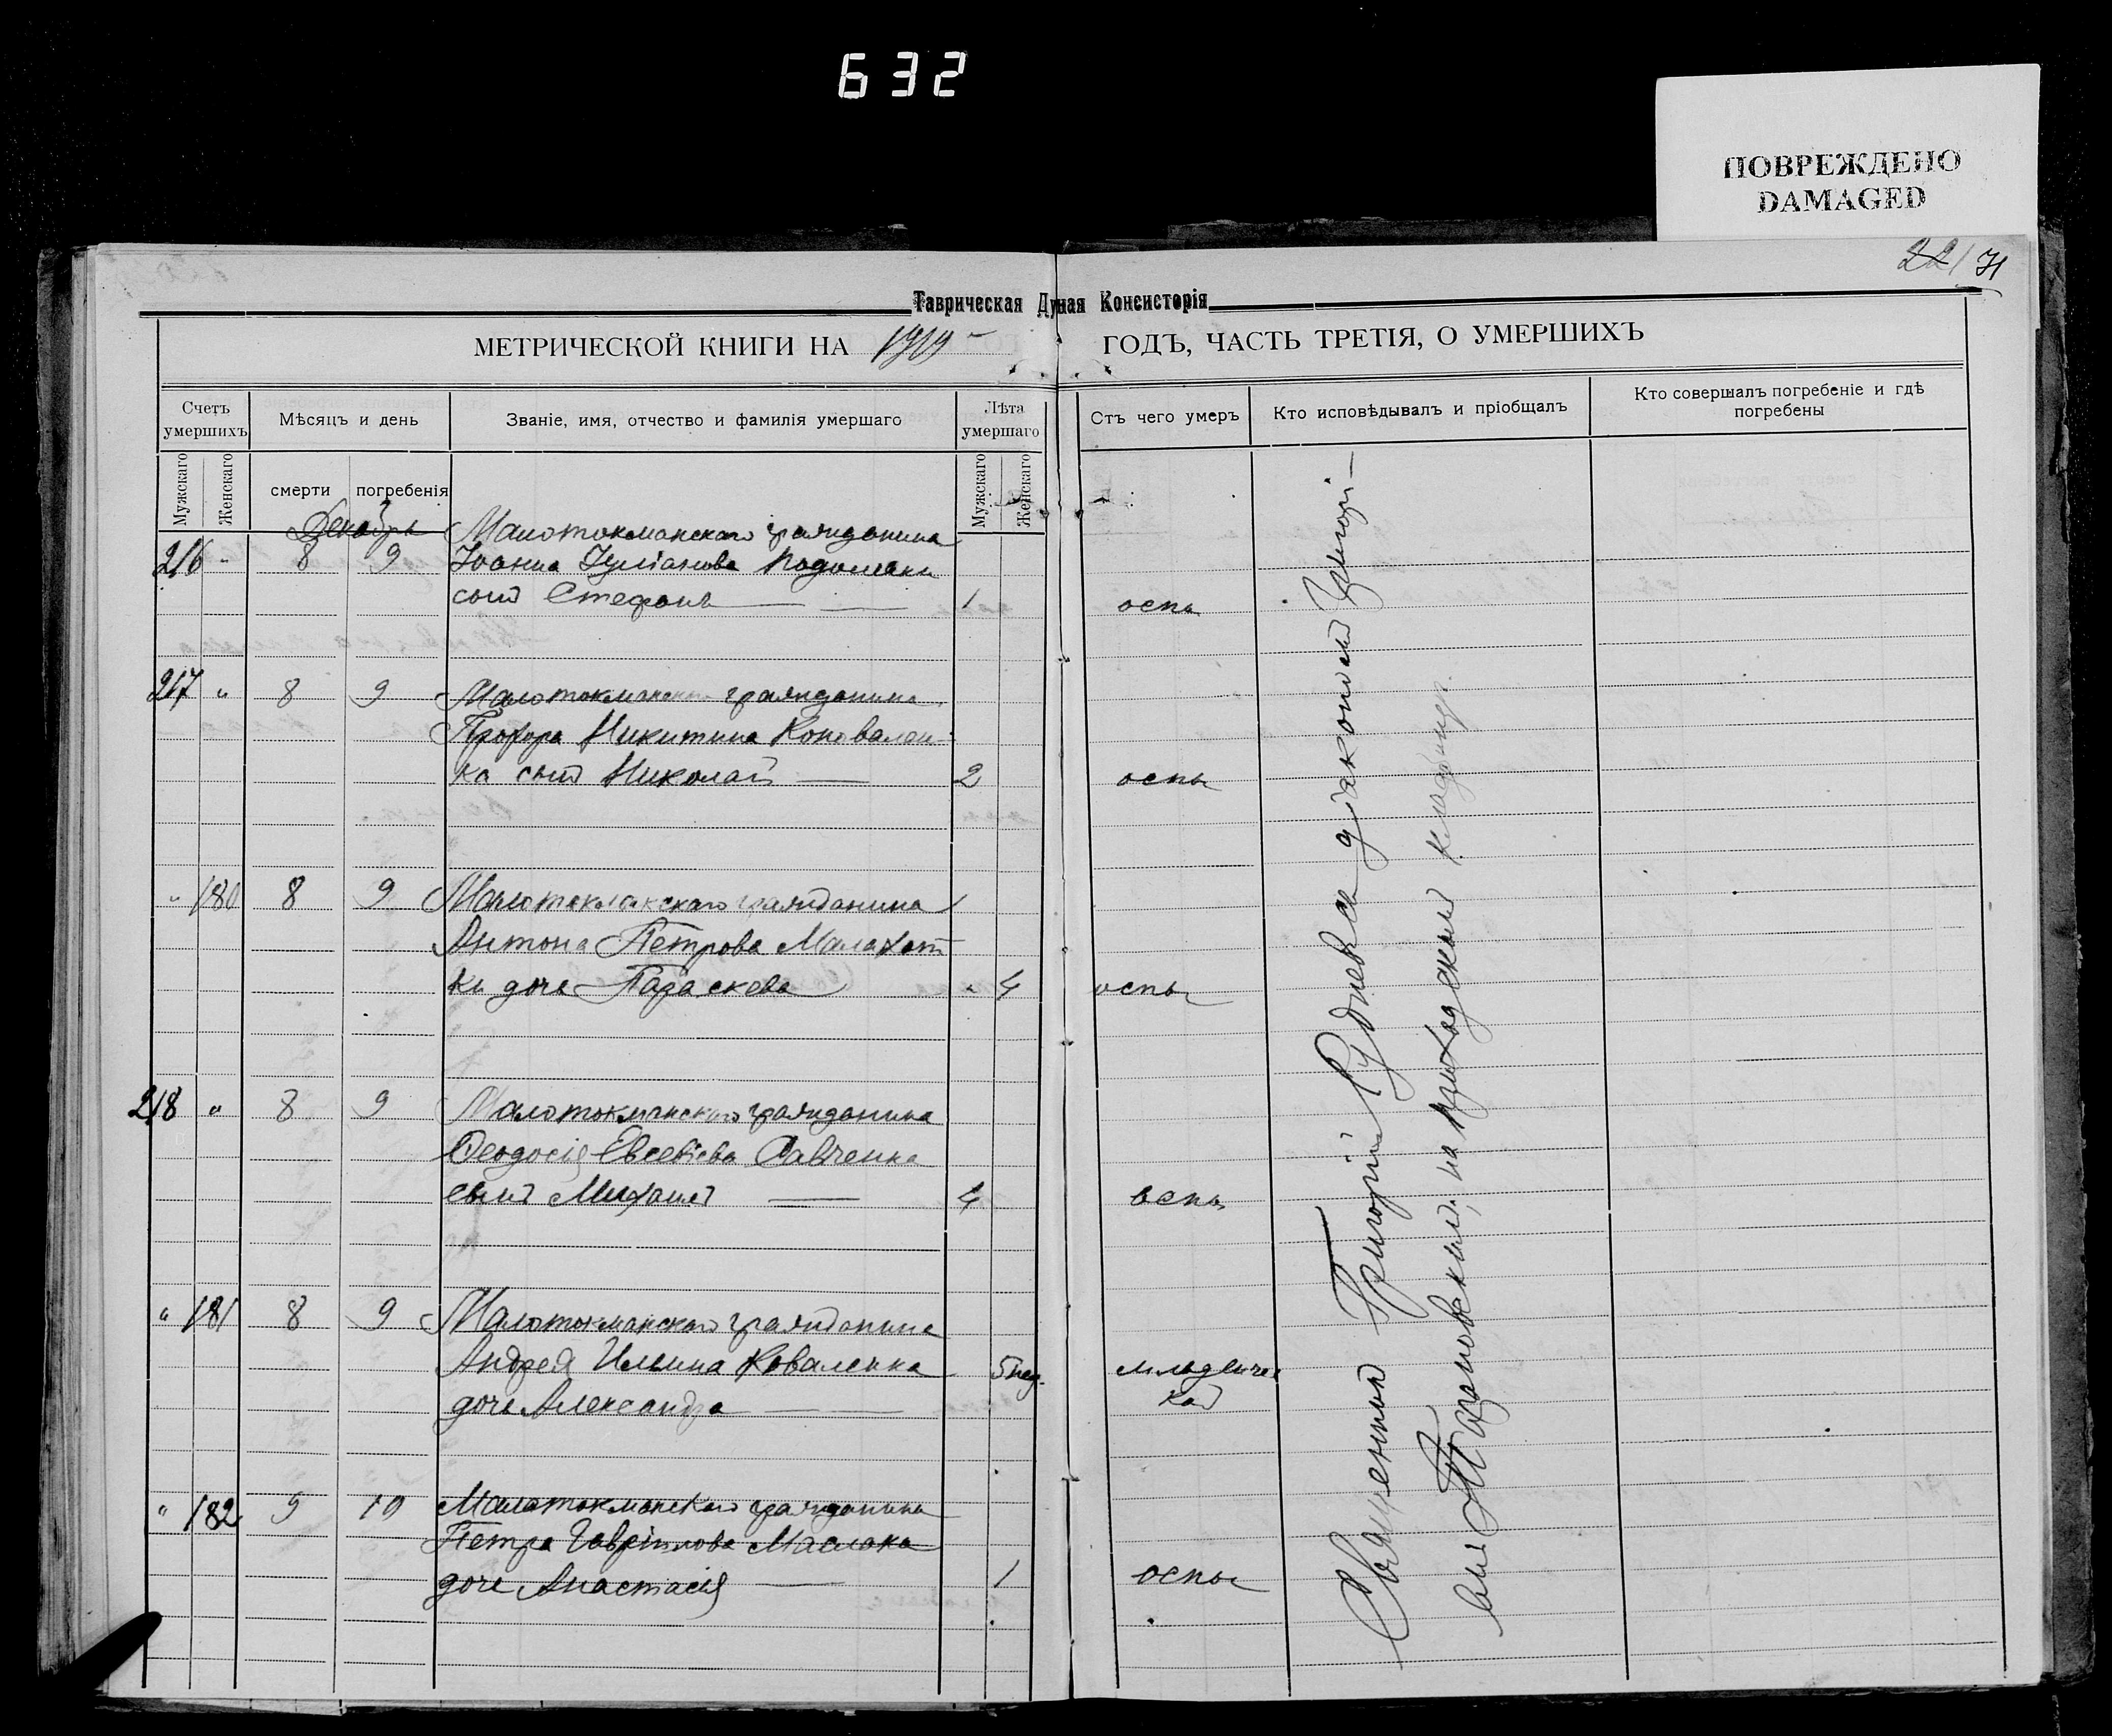 632
ПОВРЕЖДЕНО
DAMAGED
22/71
Таврическая Дуная Консисторія
МЕТРИЧЕСКОЙ КНИГИ НА 1919 ГОДЪ, ЧАСТЬ ТРЕТІЯ, О УМЕРШИХЪ
Счетъ умершихъ
Мѣсяцъ и день
Званіе, имя, отчество и фамилія умершаго
Лѣта умершаго
Стъ чего умеръ
Кто исповѣдывалъ и пріобщалъ
Кто совершалъ погребеніе и гдѣ погребены
Мужскаго
Женскаго
смерти
погребенія
Мужскаго
Женскаго
Декабрь
Малотокмакскаго гражданина
216 " 8 9 Іоанна Іуліанова
сынъ Стефанъ 1 оспы
217 " 8 9 Малотокмакскаго гражданина
Прохора Никитина Коновален-
ка сынъ Николай 2 оспы
" 180 8 9 Малотокмакскаго гражданина
Антона Петрова Малахат
ки дочь Параскева " 4 оспы
218 " 8 9 Малотокмакскаго гражданина
Феодосія Евсевіева Савченка
сынъ Михаилъ 4 оспы
" 181 8 9 Малотокмакскаго гражданина
Андрея Ильина Коваленка 5 нед. младенчес
дочь Александра кой
" 182 9 10 Малотокмакскаго гражданина
Петра Гавріилова Маслака
дочь Анастасія 1 оспы
Священникъ Григорій Рудневъ съ діакономъ Григорі-
емъ Тарановскимъ, на приходскомъ кладбищѣ.